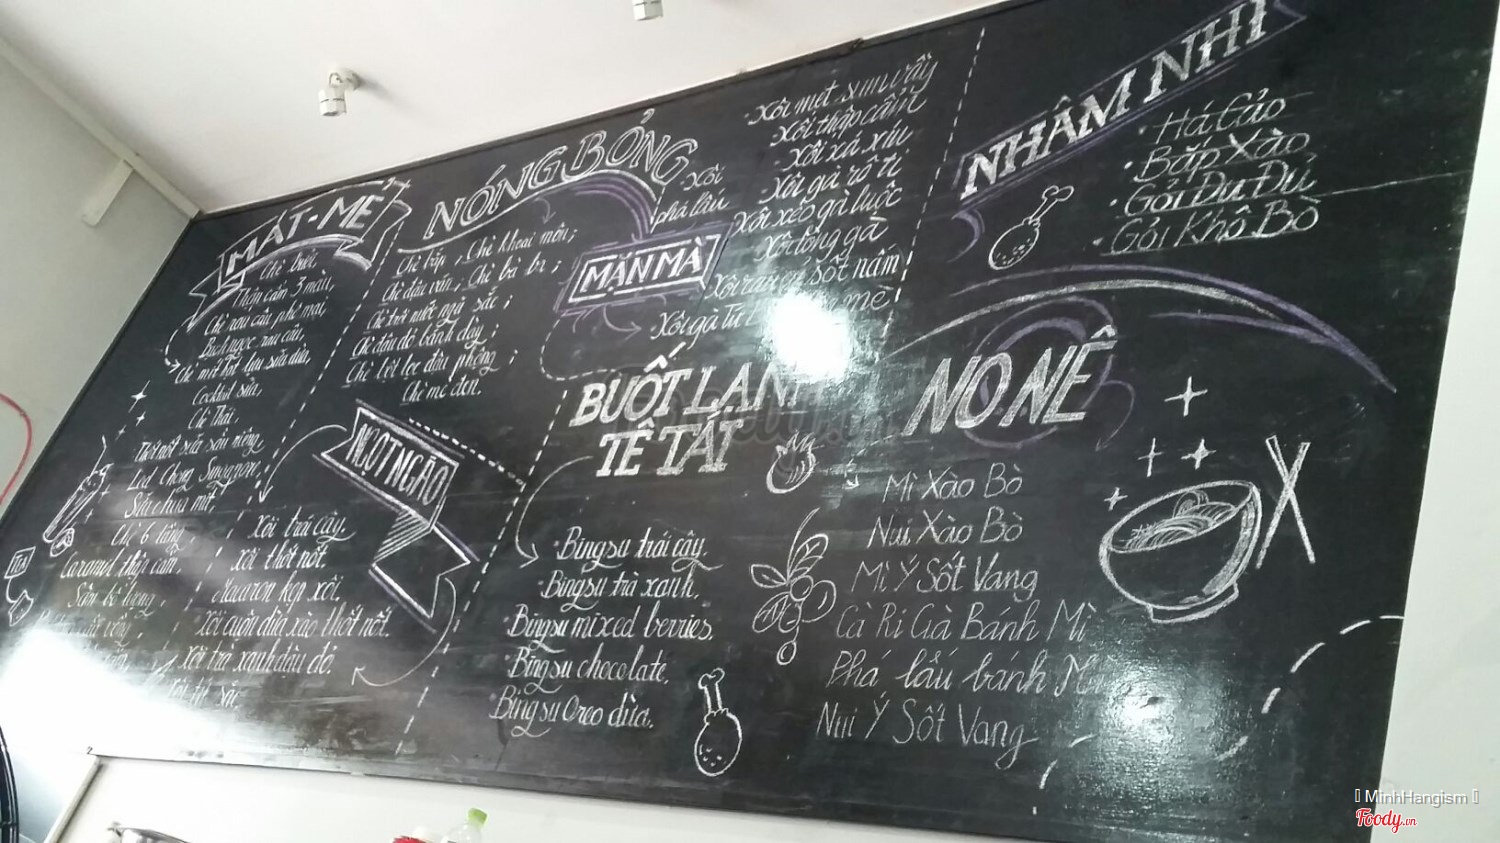 MÁT-MẺ
Chè bưởi,
Thập cẩm 3 màu,
Chè rau câu phô mai,
Bạch ngọc rau câu,
Chè mít hột lựu sữa dừa,
Cocktail sữa,
Chè Thái,
Thốt nốt sữa sầu riêng,
Led Chong Singapore,
Sữa chua mít,
Chè 6 tầng,
Caramel thập cẩm,
NÓNG BỎNG
Chè bắp, Chè khoai môn;
Chè đậu ván, Chè bà ba;
Chè trôi nước ngũ sắc;
Chè đậu đỏ bánh dày;
Chè bột lọc đậu phộng;
Chè mè đen.
NGỌT NGÀO
Xôi trái cây.
Xôi thốt nốt.
Macaron kẹp xôi.
Xôi cuộn dừa xào thốt nốt.
Xôi trà xanh đậu đỏ.
MẶN MÀ
Xôi phá lấu
-Xôi mẹt sum vầy
-Xôi thập cẩm
-Xôi xá xíu
-Xôi gà rô ti
Xôi xéo gà luộc
Xôi lòng gà
Xôi gà Tứ
BUỐT LẠNH
TÊ TÁI
•Bingsu trái cây.
•Bingsu trà xanh.
•Bingsu mixed berries.
•Bingsu chocolate.
•Bingsu Oreo dừa.
NHÂM NHI
•Há Cảo
•Bắp Xào
•Gỏi Đu Đủ
•Gỏi Khô Bò
NO NÊ
Mì Xào Bò
Nui Xào Bò
Mì Ý Sốt Vang
Cà Ri Gà Bánh Mì
Phá lấu bánh Mì
Nui Ý Sốt Vang
TEA
MinhHangism
Foody.vn